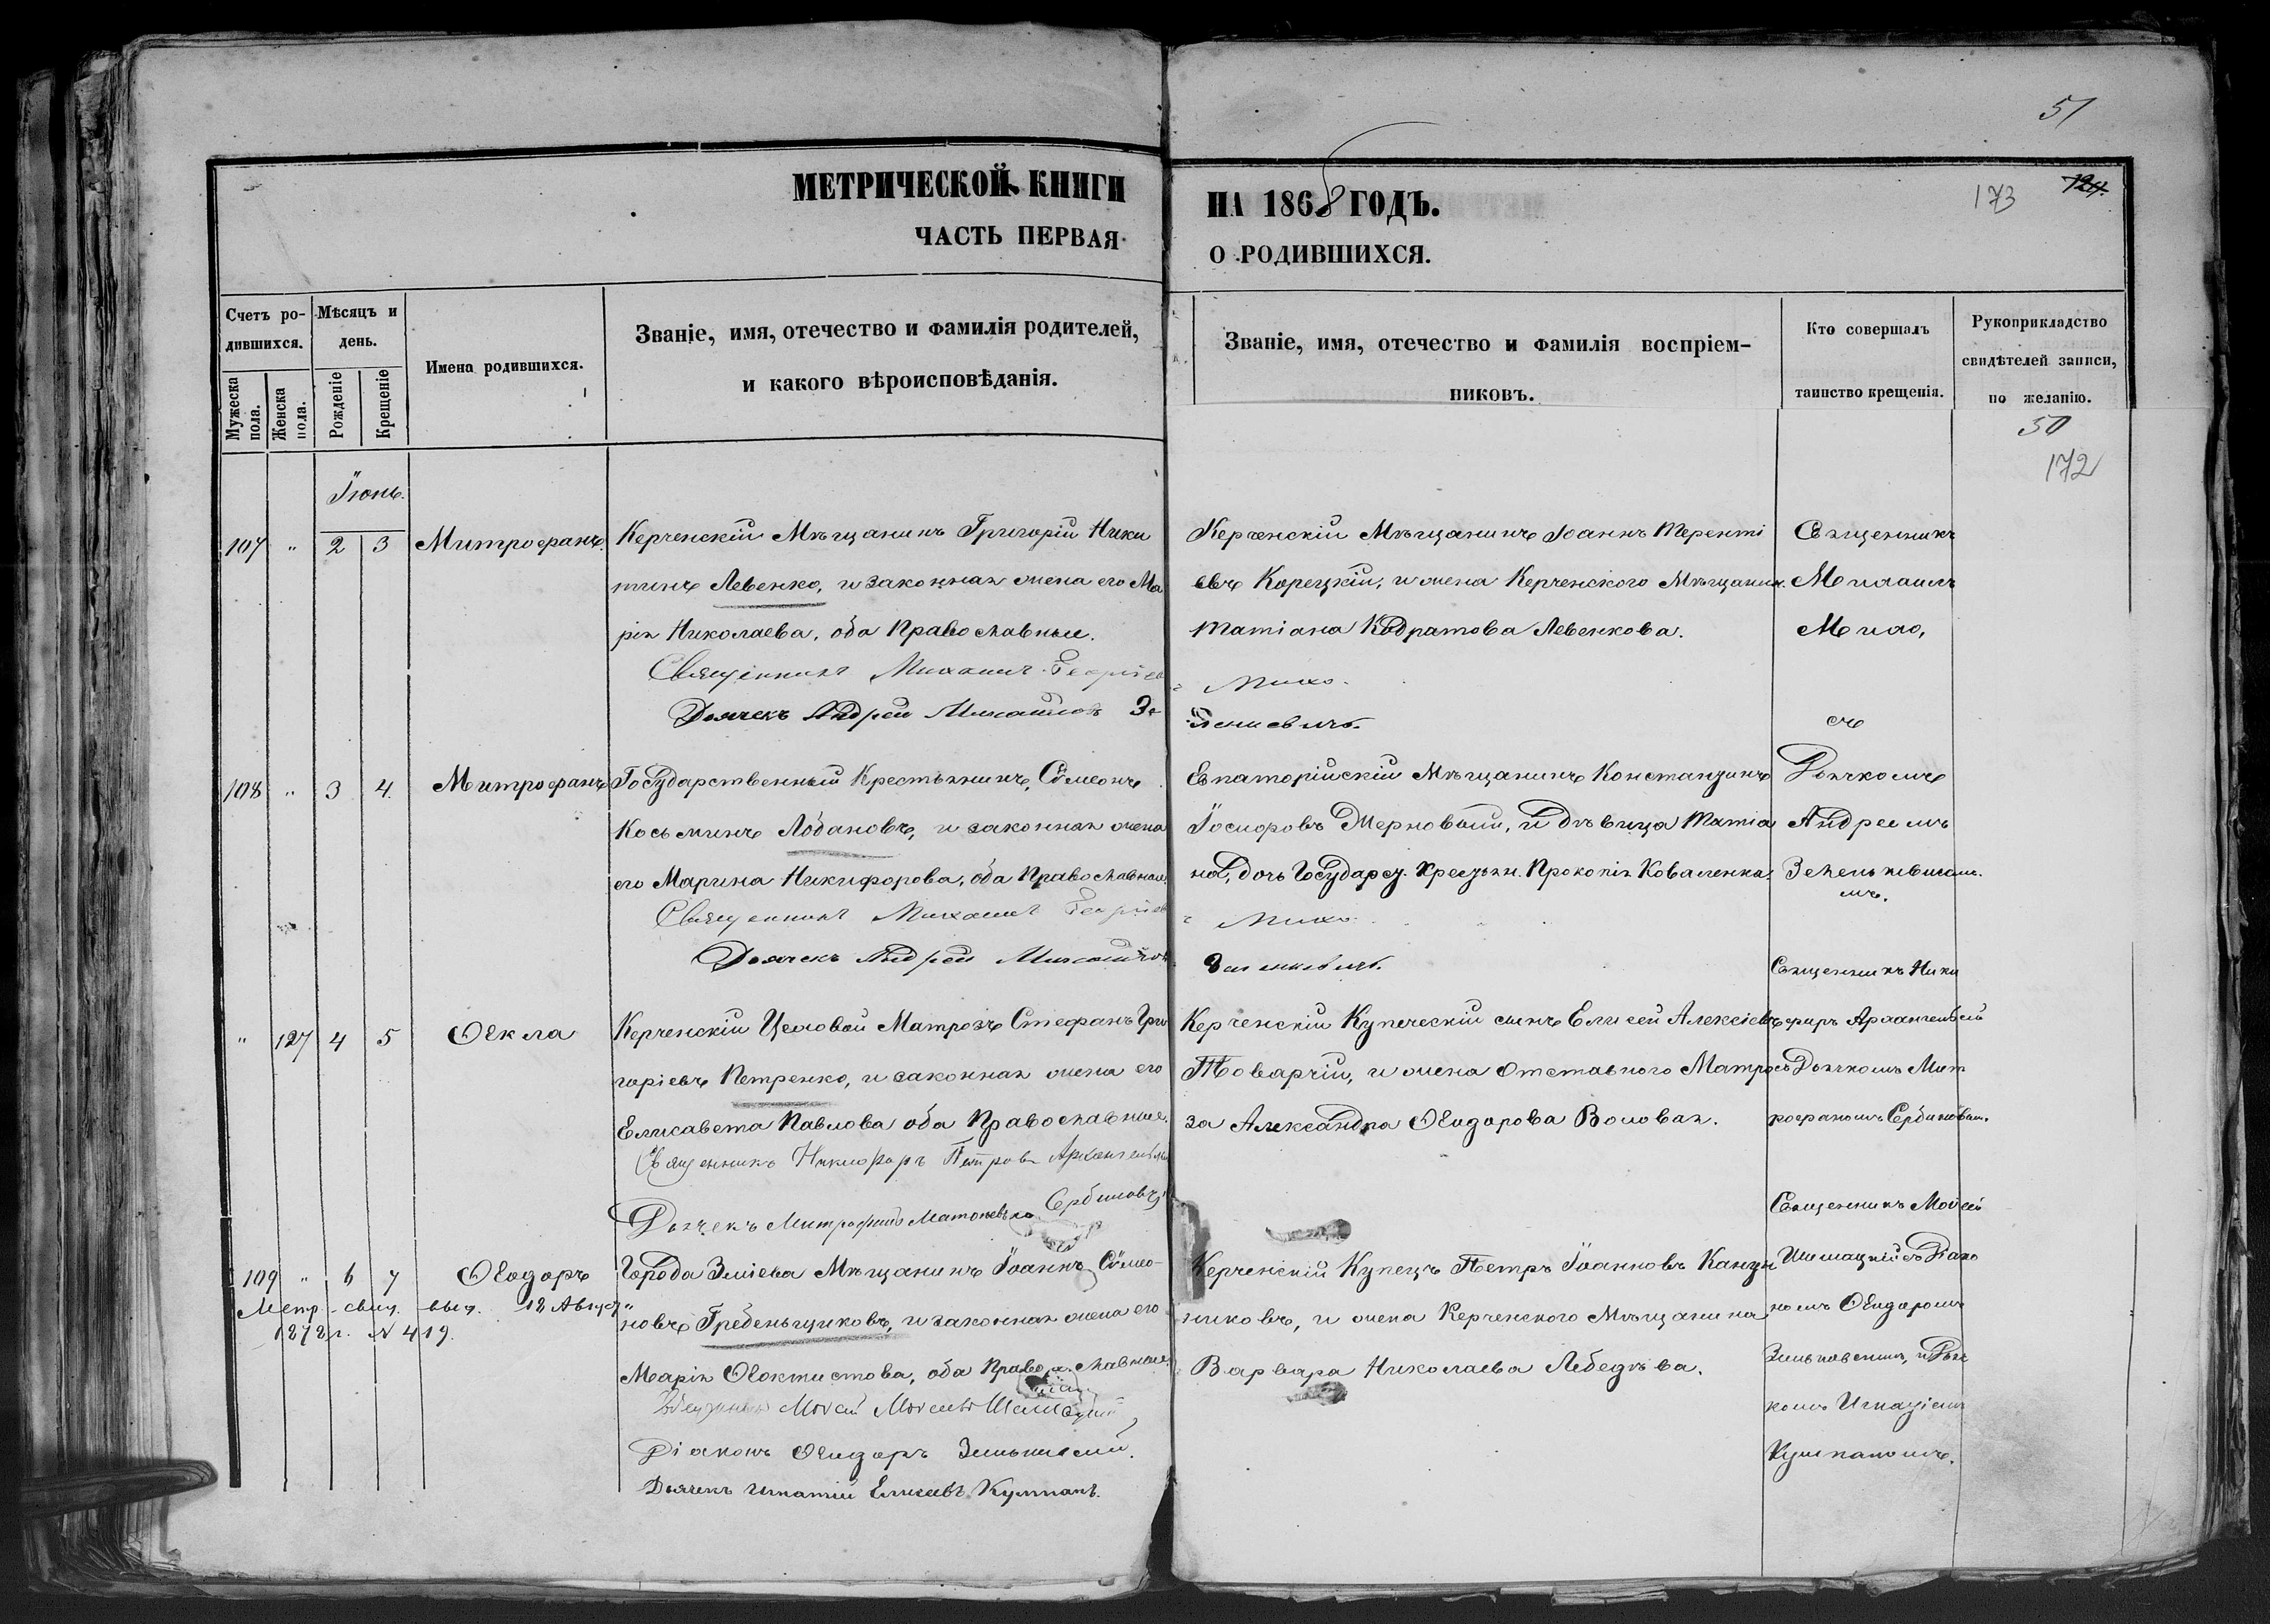 51
МЕТРИЧЕСКОЙ КНИГИ НА 1868 ГОДЪ.
173 124.
ЧАСТЬ ПЕРВАЯ О РОДИВШИХСЯ.
Счетъ ро-
дившихся.
Мужеска пола.
Женска пола.
Мѣсяцъ и
день.
Рожденіе
Крещеніе
Имена родившихся.
Званіе, имя, отечество и фамилія родителей,
и какого вѣроисповѣданія.
Званіе, имя, отечество и фамилія воспріем-
никовъ.
Кто совершалъ
таинство крещенія.
Рукоприкладство
свидѣтелей записи,
по желанію.
50
172
Іюнь.
107 " 2 3 Митрофанъ.
Керченскій Мѣщанинъ Григорій Ники
тинъ Левенко, и законная жена его Ма
рія Николаева, оба Православные.
Священникъ Михаилъ Георгіев Михо.
Дьячекъ Андрей Михайловъ Зе
Керченскій Мѣщанинъ Іоаннъ Теренті
евъ Корецкій, и жена Керченского Мѣщанин.
Татіана Кодратова Левенкова.
Священникъ
Михаилъ
Михо,
съ
Дьячкомъ
Андреемъ
108 " 3 4. Митрофанъ
Государственный Крестьянинъ, Сѵмеонъ
Косьминъ Лобановъ, и законная жена
его Марина Никифорова, оба Православные.
Священникъ Михаилъ Георгіев Михо.
Дьячекъ Андрей Михайлов
Евпаторійскій Мѣщанинъ Константинъ
Іосифовъ и дѣвица Татіа
на, дочь Государст. Крестьян. Прокопія Коваленка.
" 127 4 5 Ѳекла
Керченскій Матрозъ Стефанъ Гри
горіевъ Петренко, и законная жена его
Елисавета Павлова оба Православные.
Священникъ Никифоръ Петровъ Архангельскій
Дьячекъ Митрофанъ Сербиновъ
Керченскій Купеческій сынъ Елисей Алексіевъ
Товарчій, и жена отставного Матро
за Александра Ѳеодорова Воловая.
Священникъ Ники
форъ Архангельскій
съ Дьячкомъ Мит
рофаномъ Сербиновым.
109 " 6 7 Ѳеодоръ
Метр. свид. выд. 18 Август
1872 г. № 419.
Города Зміева Мѣщанинъ Іоаннъ Сѵмео-
новъ Гребеньщиковъ, и законная жена его
Марія Ѳеоктистова, оба Православные.
Моѵсей
Діаконъ Ѳеодоръ Зеньковскій.
Дьячекъ Игнатій Елисеевъ Кушпакъ.
Керченскій Купецъ Петръ Іоанновъ
никовъ, и жена Керченского Мѣщанина
Варвара Николаева Лебедѣва.
Священникъ Моѵсей
съ Діако
номъ Ѳеодоромъ
Зеньковскимъ, и Дьяч
комъ Игнатіемъ
Кушпакомъ.